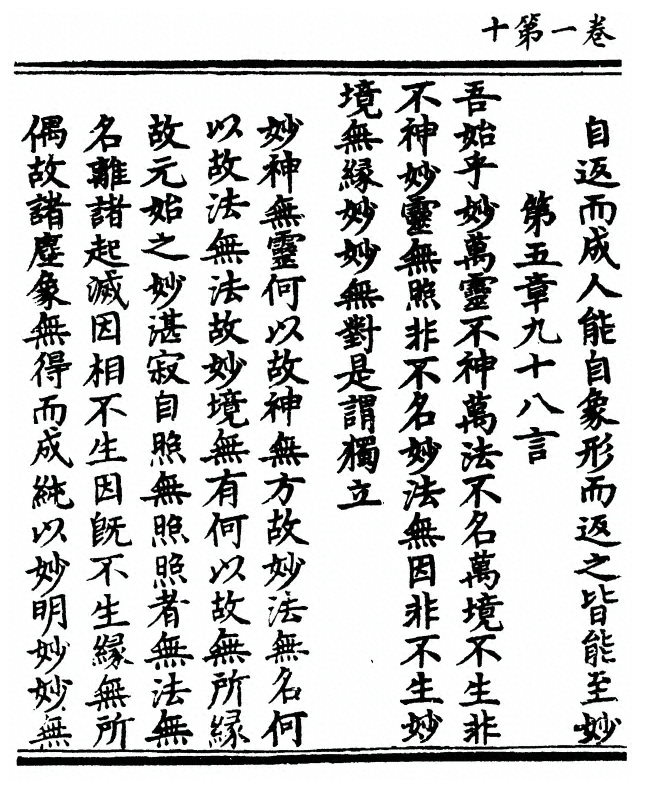 卷一第十
自返而成人能自象形而返之皆能至妙
第五章九十八言
吾始乎妙萬靈不神萬法不名萬境不生非
不神妙靈無照非不名妙法無因非不生妙
境無緣妙妙無對是謂獨立
妙神無靈何以故神無方故妙法無名何
以故法無法故妙境無有何以故無所緣
故元始之妙湛寂自照無照照者無法無
名離諸起滅因相不生因既不生緣無所
偶故諸塵象無得而成純以妙明妙妙無